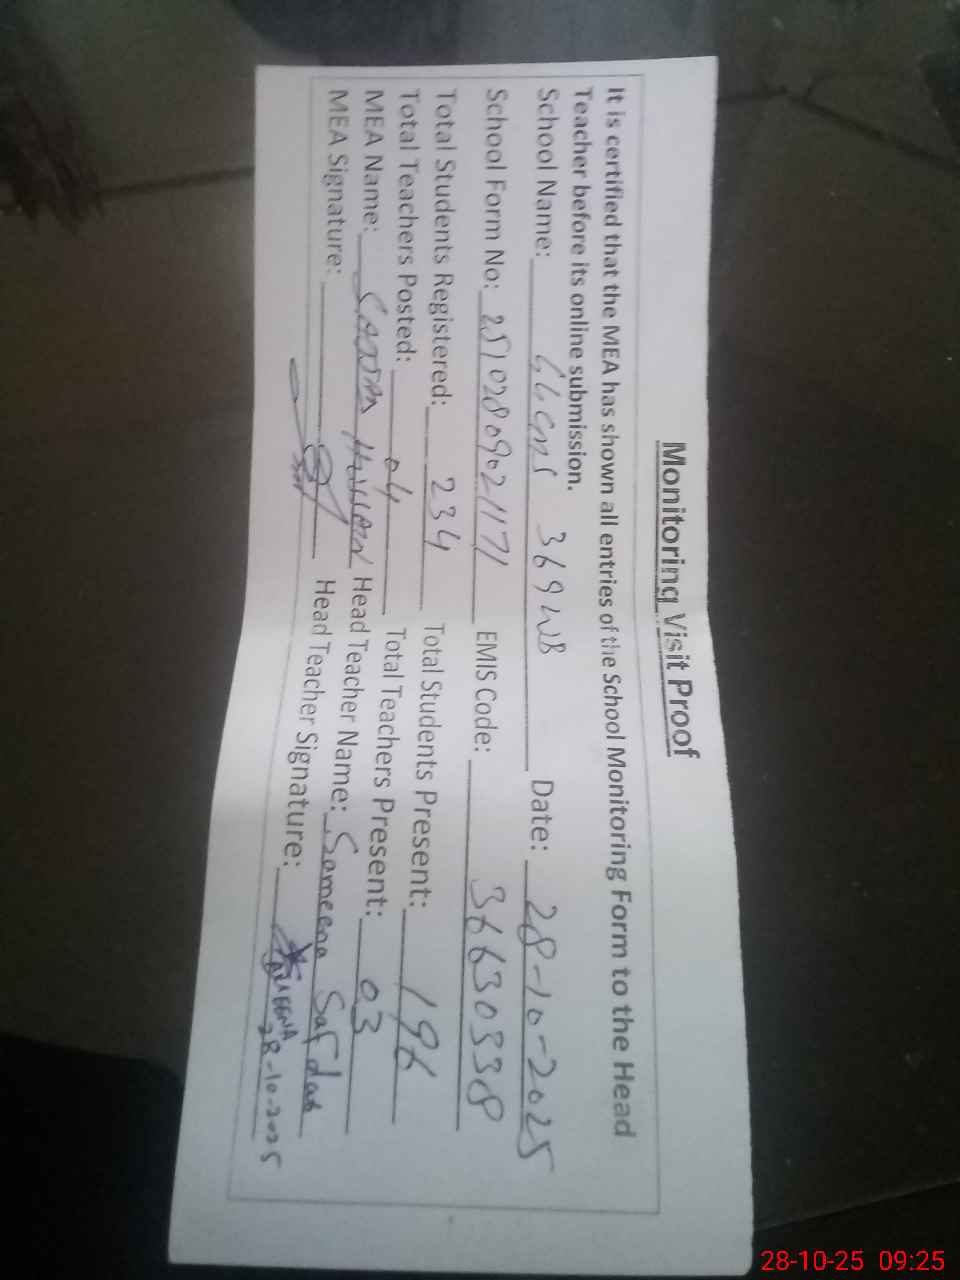 Monitoring Visit Proof
It is certified that the MEA has shown all entries of the School Monitoring Form to the Head
Teacher before its online submission.
School Name: 369 WB Date: 28-10-2025
School Form No: 251028090211171 EMIS Code: 36630338
Total Students Registered: 234 Total Students Present: 196
Total Teachers Posted: 04 Total Teachers Present: 03
MEA Name: Hussain Head Teacher Name: Sameena Safdar
MEA Signature: Head Teacher Signature:
28-10-2025
28-10-25 09:25